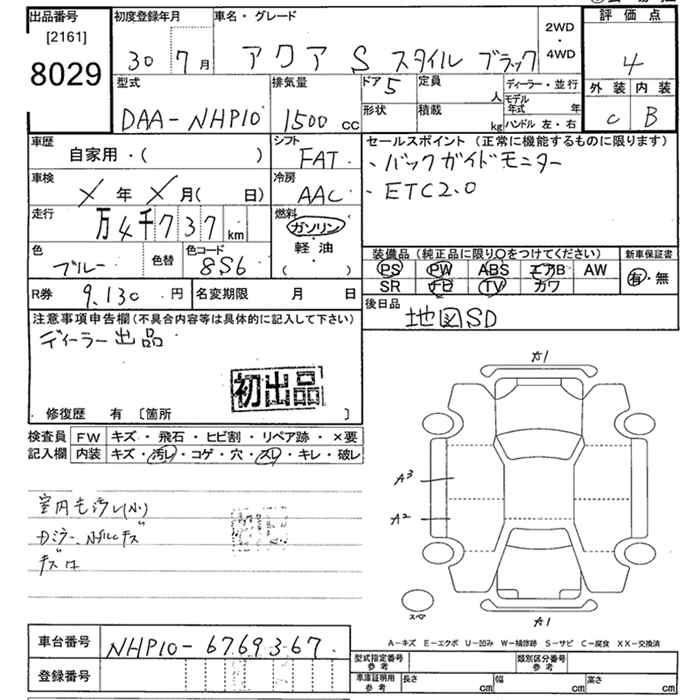 出品番号
[2161]
8029
初度登録年月
30 7 月
車名・グレード
アクア S スタイル ブラック
2WD
・
4WD
評 価 点
4
外 装 内 装
C B
型式
DAA-NHP10
排気量
1500 cc
ドア 5
定員
人
形状
積載
kg
ディーラー・並行
モデル年式 年
ハンドル 左・右
車歴
自家用・( )
シフト
FAT
車検
年 月( 日)
冷房
AAC
走行
万 4 千 7 3 7 km
燃料
ガソリン
軽・油
( )
色
ブルー
色替
色コード
8S6
R券
9,130 円
名変期限 月 日
セールスポイント (正常に機能するものに限ります)
・バックガイドモニター
・ETC2.0
装備品 (純正品に限り○をつけてください)
新車保証書
PS PW ABS エアB AW
SR TV カワ
有・無
後日品
地図SD
注意事項申告欄 (不具合内容等は具体的に記入して下さい)
ディーラー出品
初出品
修復歴 有 〔箇所 〕
検査員記入欄
FW キズ・飛石・ヒビ割・リペア跡・×要
内装 キズ・汚レ・コゲ・穴・スレ・キレ・破レ
室内も汚レ(小)
A1
A3
A2
スペア
A1
A-キズ E-エクボ U-凹み W-補修跡 S-サビ C-腐食 XX-交換済
車台番号
NHP10-6769367
登録番号
型式指定番号 参考
類別区分番号 参考
車庫証明用 参考
長さ cm 幅 cm 高さ cm